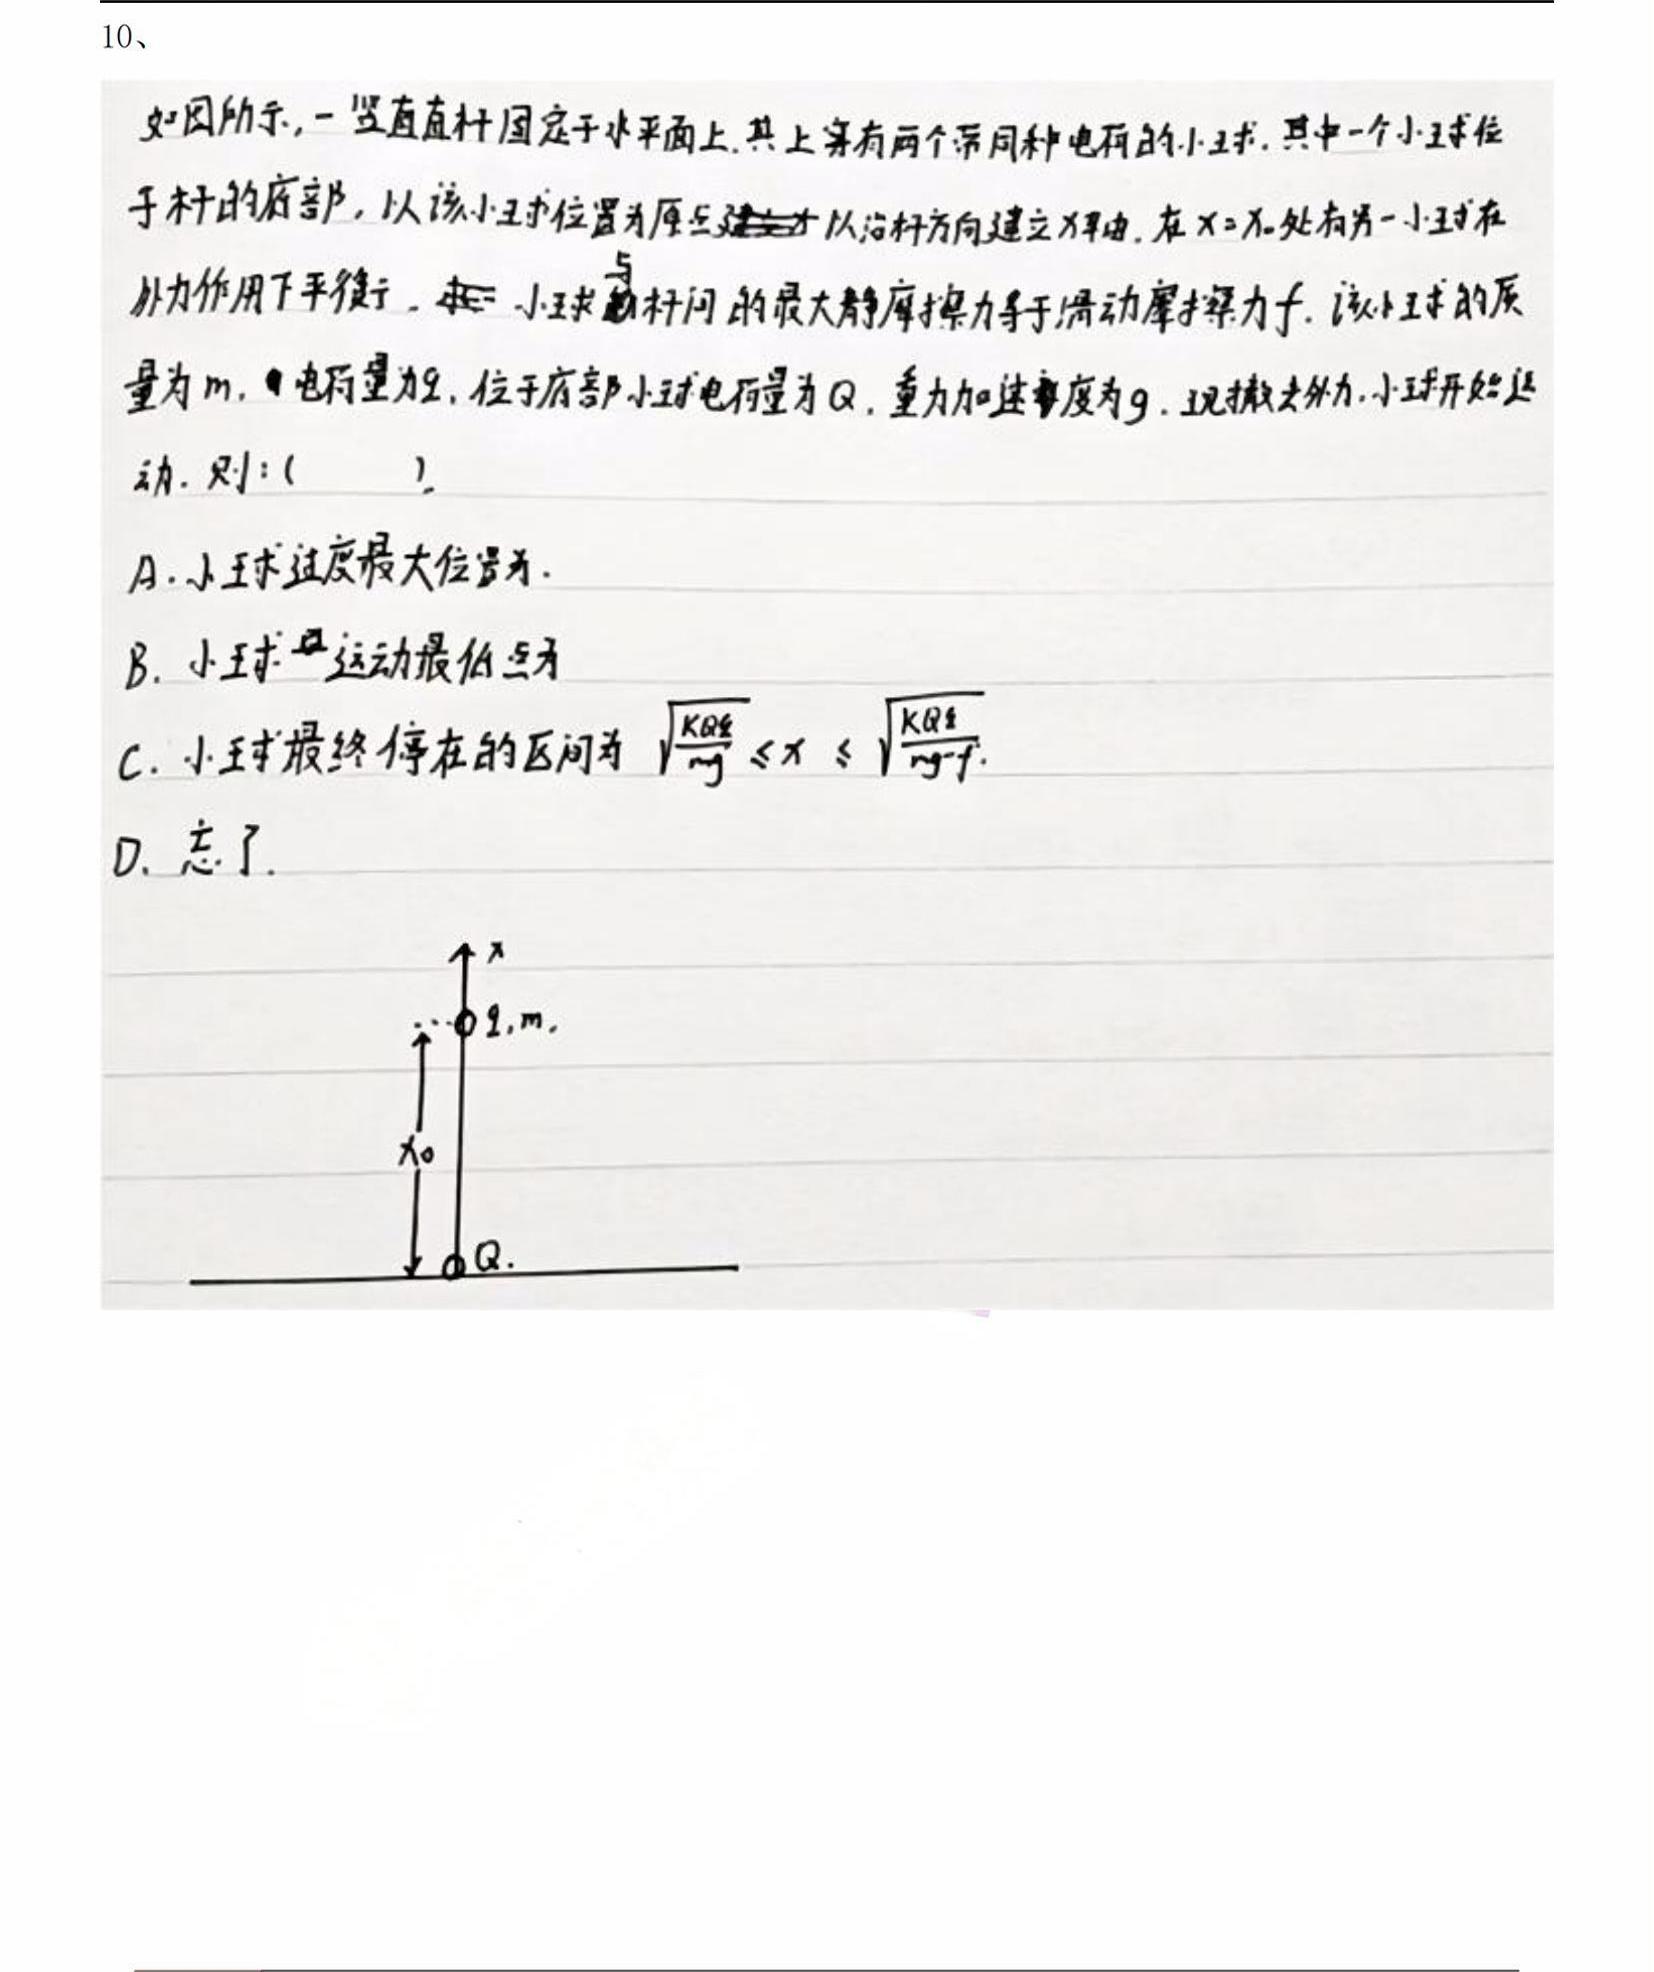 10、
如图所示,一竖直直杆固定于水平面上.其上穿有两个带同种电荷的小球.其中一个小球位
于杆的底部,以该小球位置为原点以沿杆方向建立x轴.在x=x₀处有另一小球在
外力作用下平衡.小球与杆间的最大静摩擦力等于滑动摩擦力f.该小球的质
量为m.电荷量为q.位于底部小球电荷量为Q.重力加速度为g.现撤去外力.小球开始运
动.则:( ).
A.小球速度最大位置为.
B.小球运动最低点为
C.小球最终停在的区间为 √(KQq/mg) ≤ x ≤ √(KQq/(mg-f)).
D.忘了.
x
q.m.
x₀
Q.